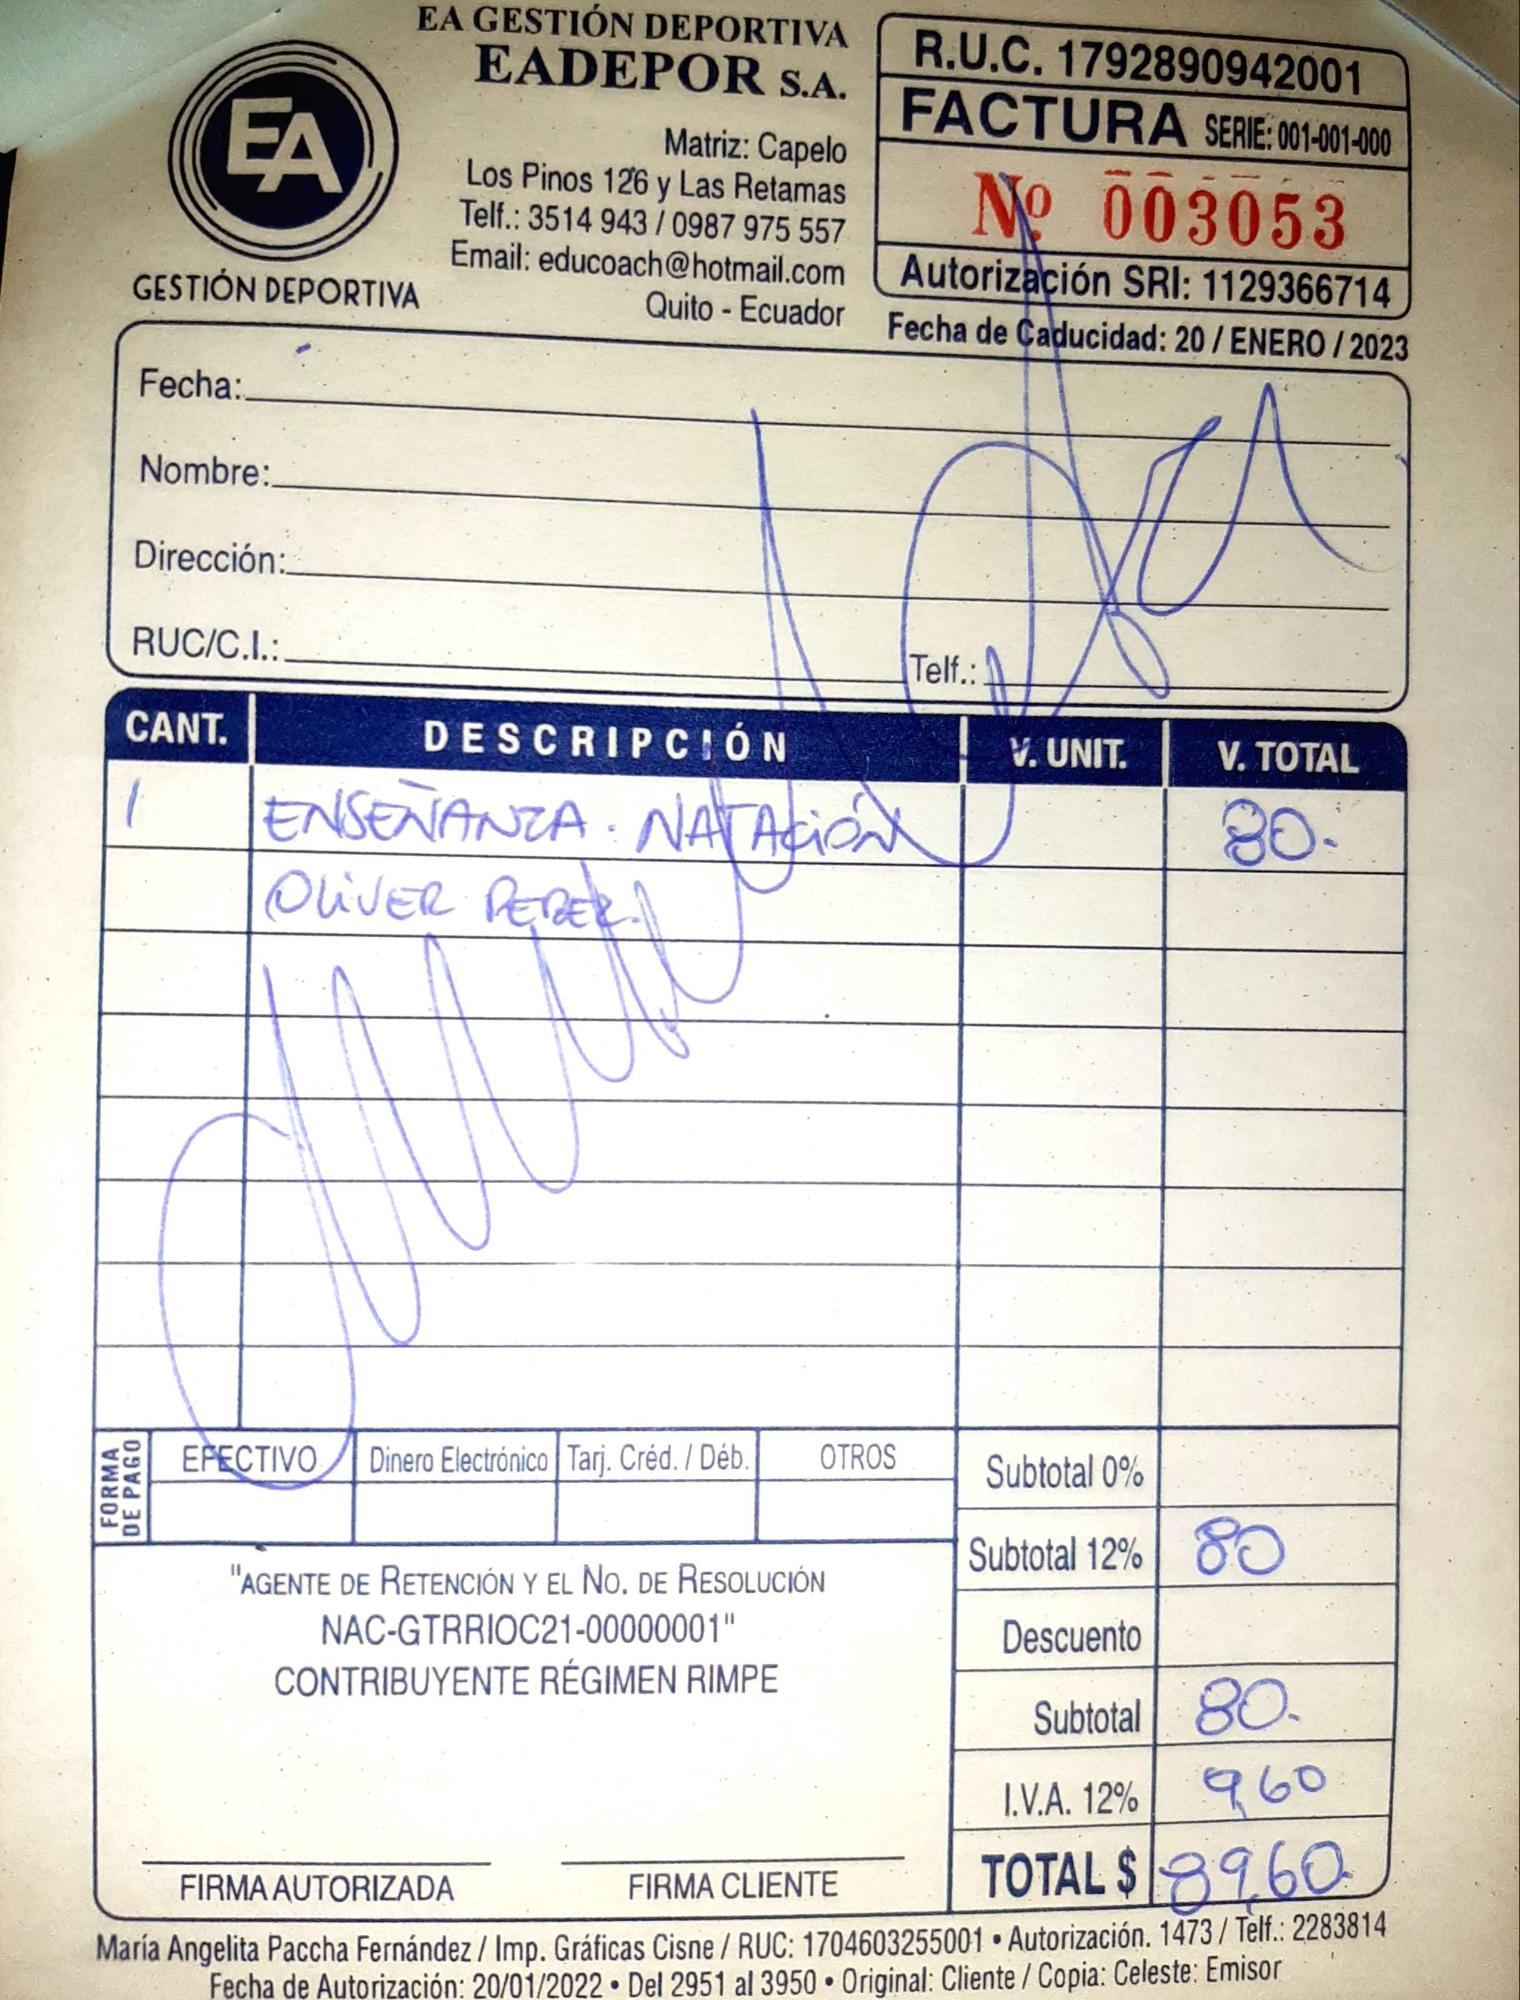 EA GESTIÓN DEPORTIVA
EADEPOR S.A.
EA
GESTIÓN DEPORTIVA
Matriz: Capelo
Los Pinos 126 y Las Retamas
Telf.: 3514 943 / 0987 975 557
Email: educoach@hotmail.com
Quito - Ecuador
R.U.C. 1792890942001
FACTURA SERIE: 001-001-000
Nº 003053
Autorización SRI: 1129366714
Fecha de Caducidad: 20 / ENERO / 2023
Fecha:
Nombre:
Dirección:
RUC/C.I.: Telf.:
CANT. DESCRIPCIÓN V. UNIT. V. TOTAL
1 ENSEÑANZA. NATACIÓN 80.
OLIVER PEREZ.
FORMA DE PAGO
EFECTIVO Dinero Electrónico Tarj. Créd. / Déb. OTROS
Subtotal 0%
Subtotal 12% 80
Descuento
Subtotal 80.
I.V.A. 12% 9,60
TOTAL $ 89,60
"AGENTE DE RETENCIÓN Y EL NO. DE RESOLUCIÓN
NAC-GTRRIOC21-00000001"
CONTRIBUYENTE RÉGIMEN RIMPE
FIRMA AUTORIZADA FIRMA CLIENTE
María Angelita Paccha Fernández / Imp. Gráficas Cisne / RUC: 1704603255001 • Autorización. 1473 / Telf.: 2283814
Fecha de Autorización: 20/01/2022 • Del 2951 al 3950 • Original: Cliente / Copia: Celeste: Emisor